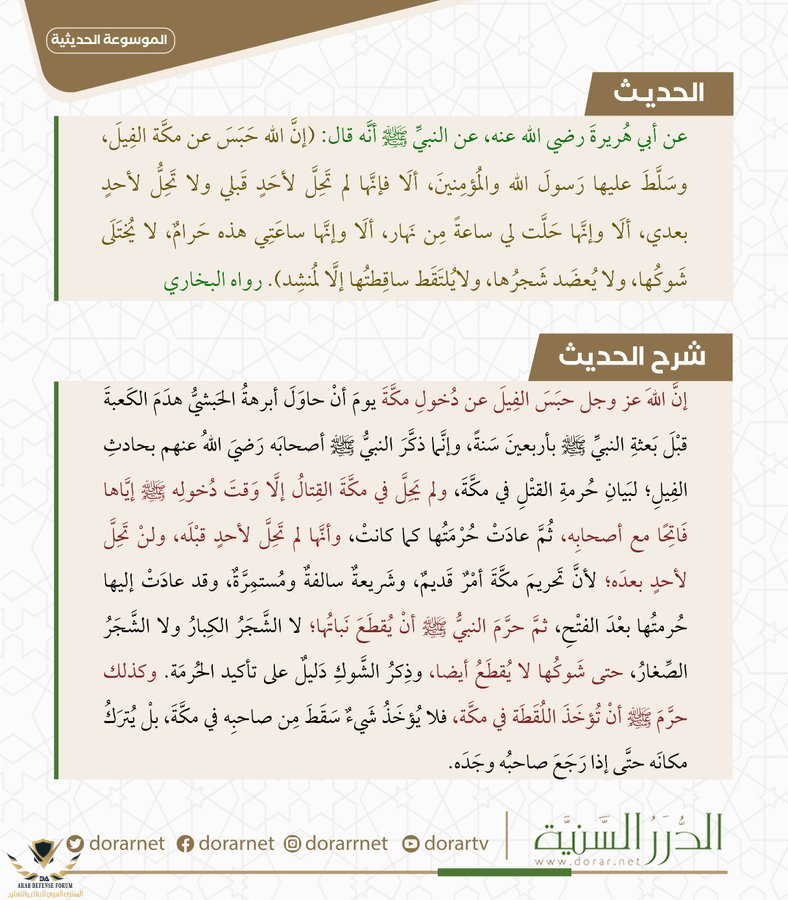 الموسوعة الحديثية
الحديث
عن أبي هُريرةَ رضي الله عنه، عن النبيِّ ﷺ أنَّه قال: (إنَّ الله حَبَسَ عن مكَّة الفِيلَ،
وسَلَّطَ عليها رَسولَ الله والمُؤمِنينَ، ألَا فإنَّها لم تَحِلَّ لأحَدٍ قَبلي ولا تَحِلُّ لأحدٍ
بعدي، ألَا وإنَّها حَلَّت لي ساعةً مِن نَهار، ألَا وإنَّها ساعَتِي هذه حَرامٌ، لا يُخْتَلَى
شَوكُها، ولا يُعضَد شَجرُها، ولايُلتَقَط ساقِطتُها إلَّا لُمنشِد). رواه البخاري
شرح الحديث
إنَّ اللهَ عز وجل حبَسَ الفِيلَ عن دُخولِ مكَّةَ يومَ أنْ حاوَلَ أبرهةُ الحَبشيُّ هدَمَ الكَعبةَ
قبْلَ بَعثةِ النبيِّ ﷺ بأربعينَ سَنةً، وإنَّما ذكَّرَ النبيُّ ﷺ أصحابَه رَضيَ اللهُ عنهم بحادثِ
الفِيلِ؛ لبَيانِ حُرمةِ القتْلِ في مكَّةَ، ولم يَحِلَّ في مكَّةَ القِتالُ إلَّا وَقتَ دُخولِه ﷺ إيَّاها
فَاتِحًا مع أصحابِه، ثُمَّ عادَتْ حُرْمَتُها كما كانتْ، وأنَّها لم تَحِلَّ لأحدٍ قبْلَه، ولنْ تَحِلَّ
لأحدٍ بعدَه؛ لأنَّ تَحريمَ مكَّةَ أمْرٌ قَديمٌ، وشَريعةٌ سالفةٌ ومُستمِرَّةٌ، وقد عادَتْ إليها
حُرمتُها بعْدَ الفتْحِ، ثمَّ حرَّمَ النبيُّ ﷺ أنْ يُقطَعَ نَباتُها؛ لا الشَّجَرُ الكِبارُ ولا الشَّجَرُ
الصِّغارُ، حتى شَوكُها لا يُقطَعُ أيضا، وذِكرُ الشَّوكِ دَليلٌ على تأكيد الحُرمَة. وكذلك
حرَّمَ ﷺ أنْ تُؤخَذَ اللُقَطَة في مكَّة، فلا يُؤخَذُ شَيءٌ سَقَطَ مِن صاحبِه في مكَّةَ، بلْ يُترَكُ
مكانَه حتَّى إذا رَجَعَ صاحبُه وجَدَه.
الدُّرَرُ السَّنِيَّة
www.dorar.net
dorarnet dorarnet dorarrnet dorartv
DA
ARAB DEFENSE FORUM
المنتدى العربي للدفاع والتسليح